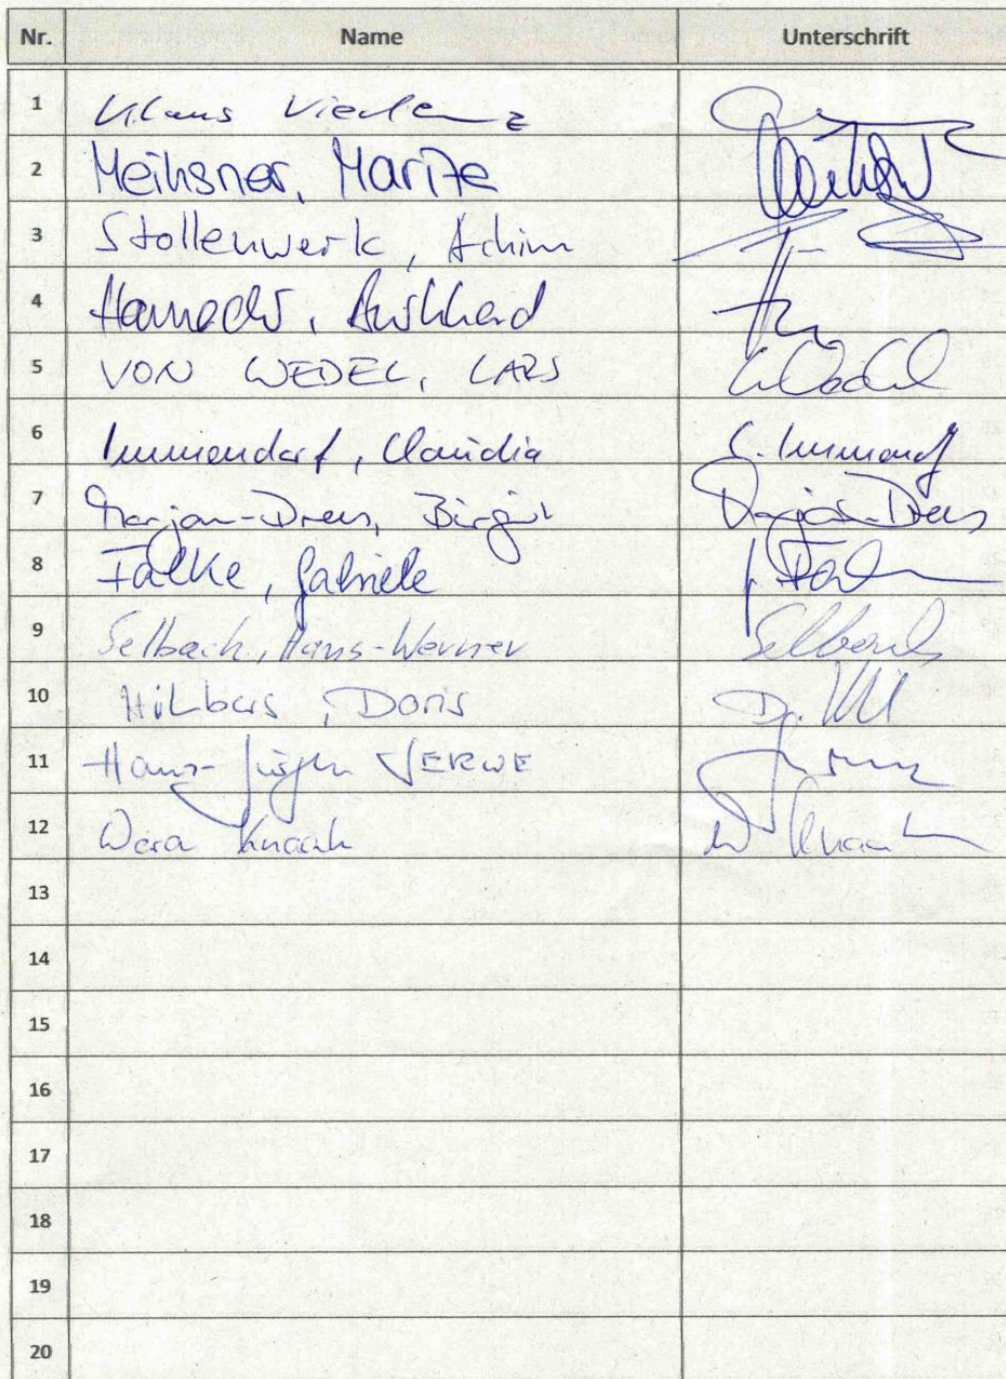 Nr. Name Unterschrift
1 Klaus
2 Meihsner, Marita
3 Stollenwerk, Achim
4 Burkhard
5 VON WEDEL, LARS
6 Immendorf, Claudia C. Immendorf
7 Marjan-Drees, Birgit Marjan-Drees
8 Falke, Gabriele
9 Selbach, Hans-Werner Selbach
10 Hilbers, Doris
11 Hans-Jürgen VERWE
12 Wera Knaak W Knaak
13
14
15
16
17
18
19
20